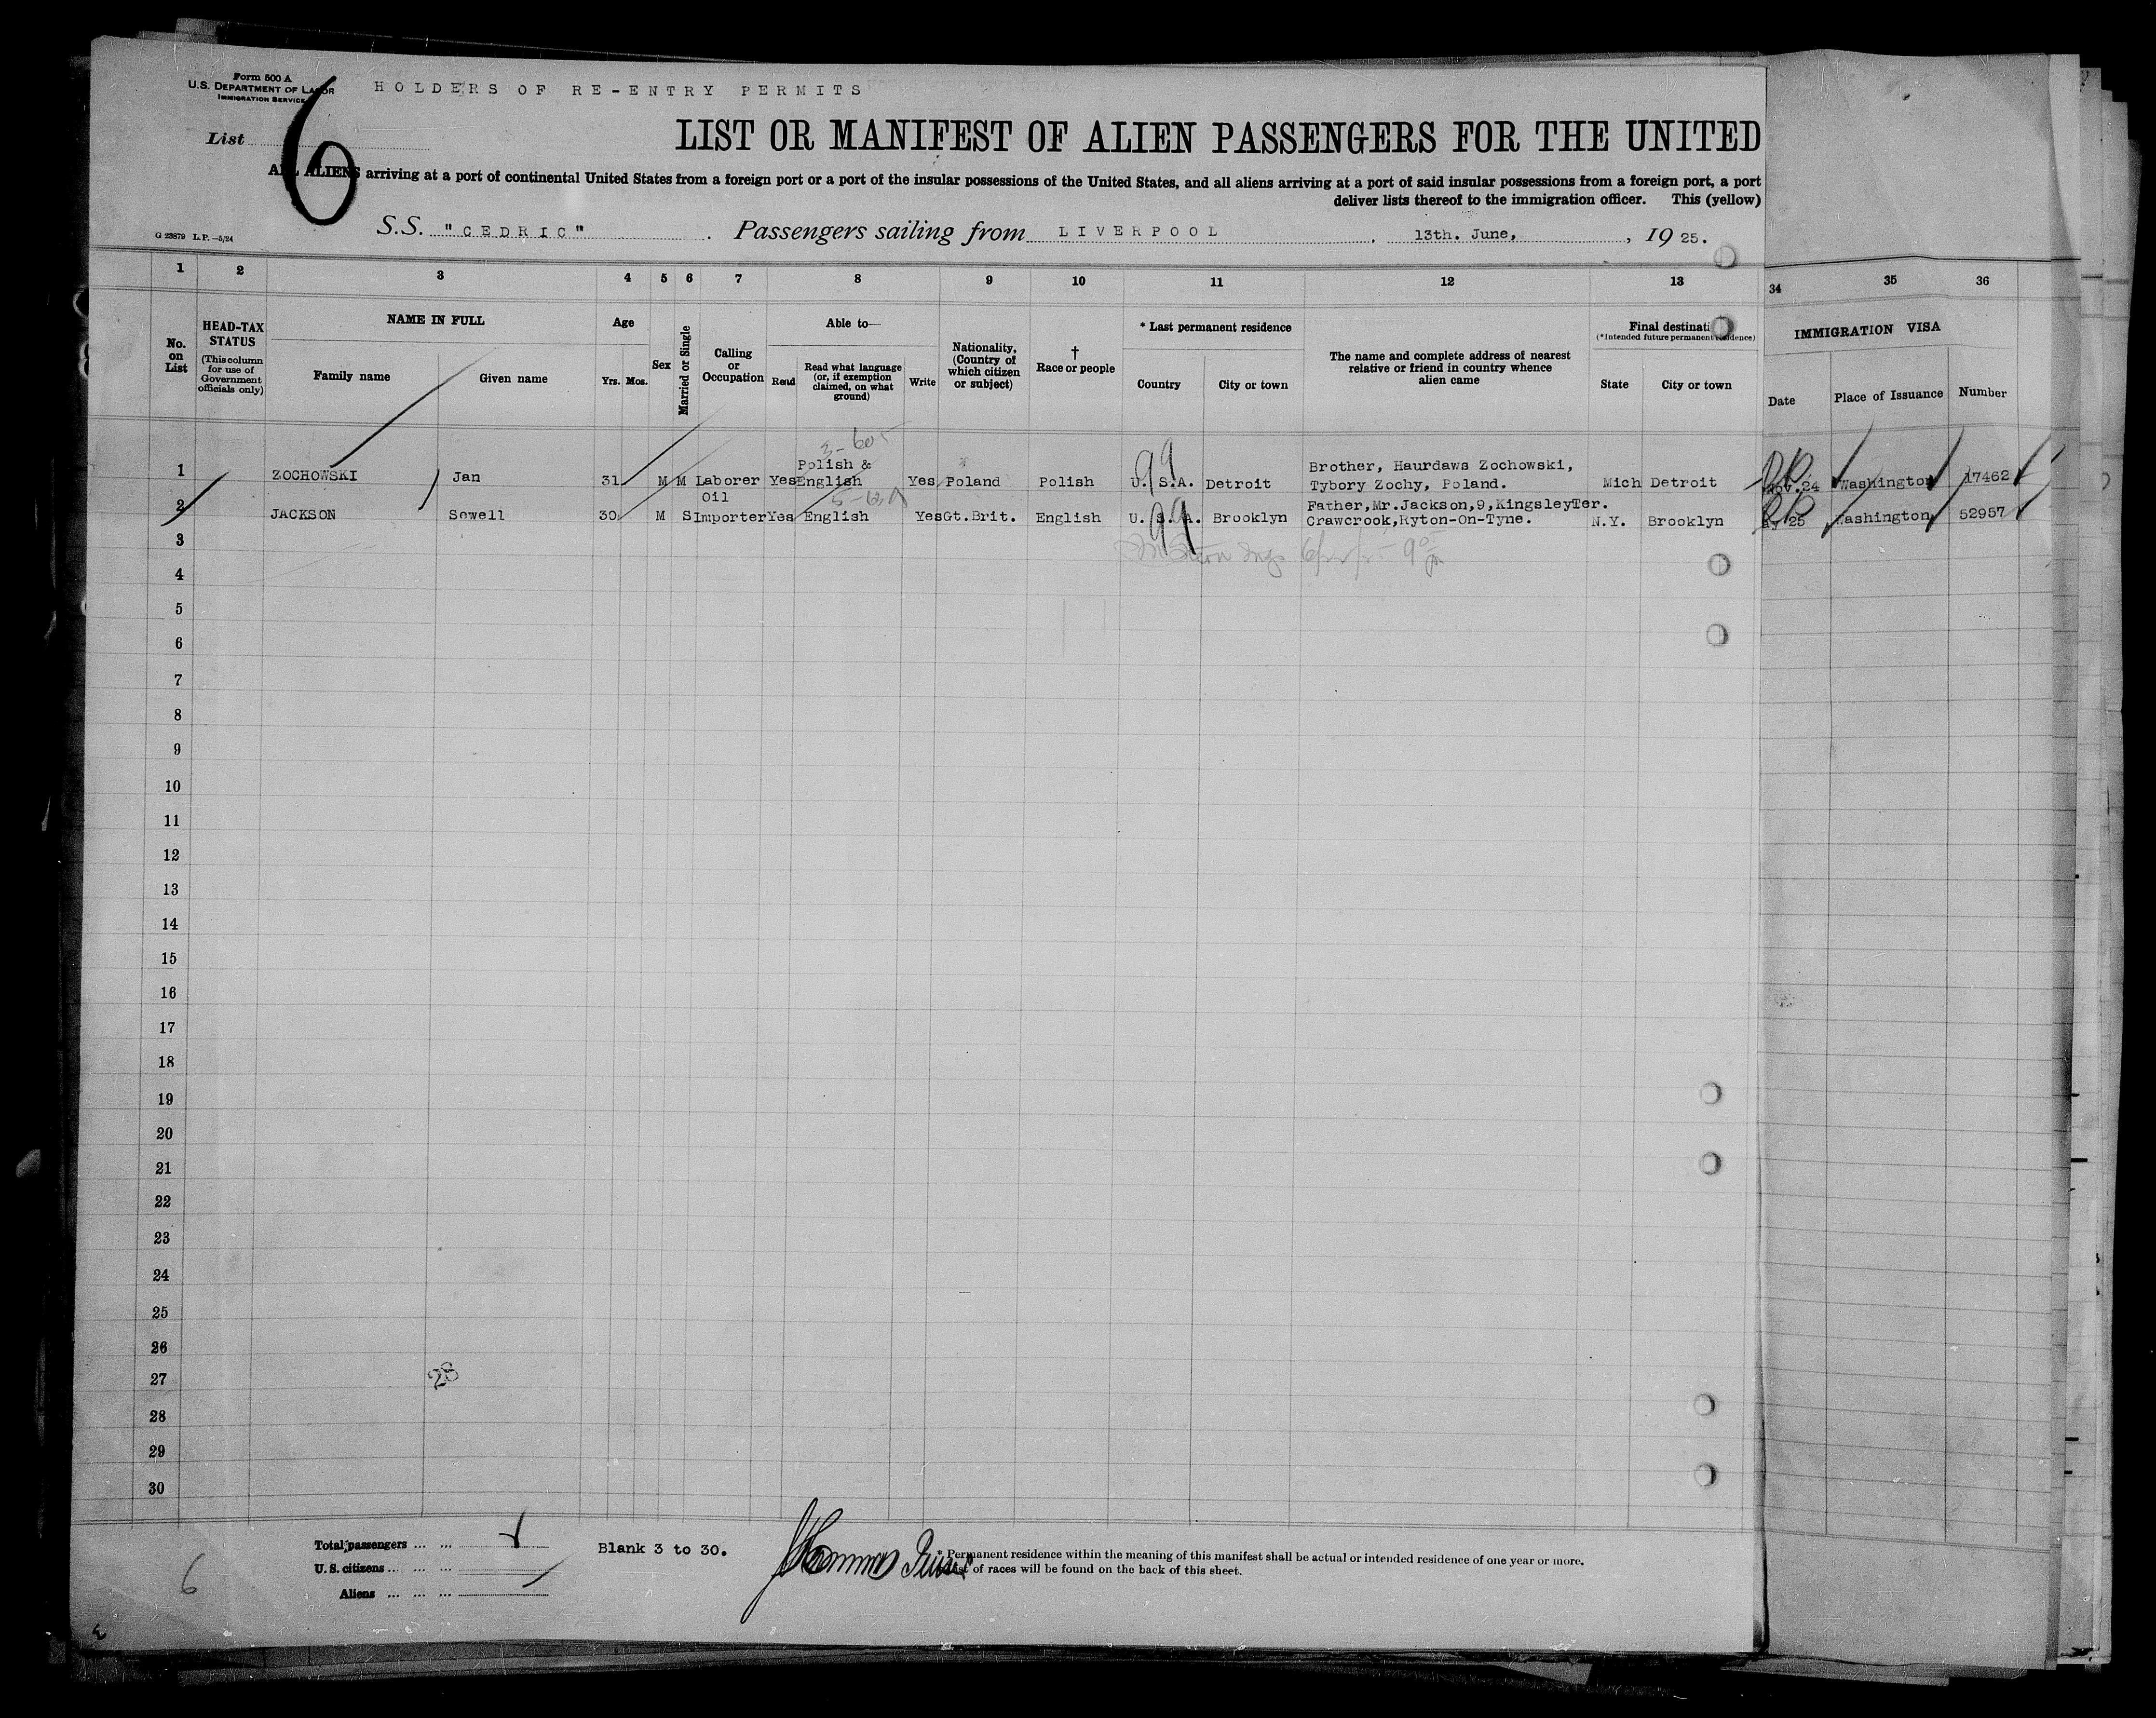 Form 500 A
U.S. DEPARTMENT OF LABOR
IMMIGRATION SERVICE
HOLDERS OF RE-ENTRY PERMITS
List 6
LIST OR MANIFEST OF ALIEN PASSENGERS FOR THE UNITED
ALL ALIENS arriving at a port of continental United States from a foreign port or a port of the insular possessions of the United States, and all aliens arriving at a port of said insular possessions from a foreign port, a port
deliver lists thereof to the immigration officer. This (yellow)
G 23879 L.P.—5/24
S.S. "CEDRIC". Passengers sailing from LIVERPOOL, 13th. June, , 19 25.
1 2 3 4 5 6 7 8 9 10 11 12 13 34 35 36
No. on List
HEAD-TAX STATUS
(This column for use of Government officials only)
NAME IN FULL
Family name
Given name
Age
Yrs. Mos.
Sex
Married or Single
Calling or Occupation
Able to—
Read
Read what language (or, if exemption claimed, on what ground)
Write
Nationality, (Country of which citizen or subject)
† Race or people
* Last permanent residence
Country
City or town
The name and complete address of nearest relative or friend in country whence alien came
Final destinati
(*Intended future permanent residence)
State
City or town
IMMIGRATION VISA
Date
Place of Issuance
Number
3-605
Polish &
Brother, Haurdaws Zochowski,
1 ZOCHOWSKI Jan 31 M M Laborer Yes English Yes Poland Polish U.S.A. Detroit Tybory Zochy, Poland. Mich Detroit Nov.24 Washington 17462
Oil
Father,Mr.Jackson,9,KingsleyTer.
2 JACKSON Sewell 30 M S Importer Yes English Yes Gt.Brit. English U.S.A. Brooklyn Crawcrook,Ryton-On-Tyne. N.Y. Brooklyn ay 25 Washington 52957
99
99
3
4
5
6
7
8
9
10
11
12
13
14
15
16
17
18
19
20
21
22
23
24
25
26
27
28
29
30
Total passengers
U.S. citizens
Aliens
Blank 3 to 30.
* Permanent residence within the meaning of this manifest shall be actual or intended residence of one year or more.
List of races will be found on the back of this sheet.
6